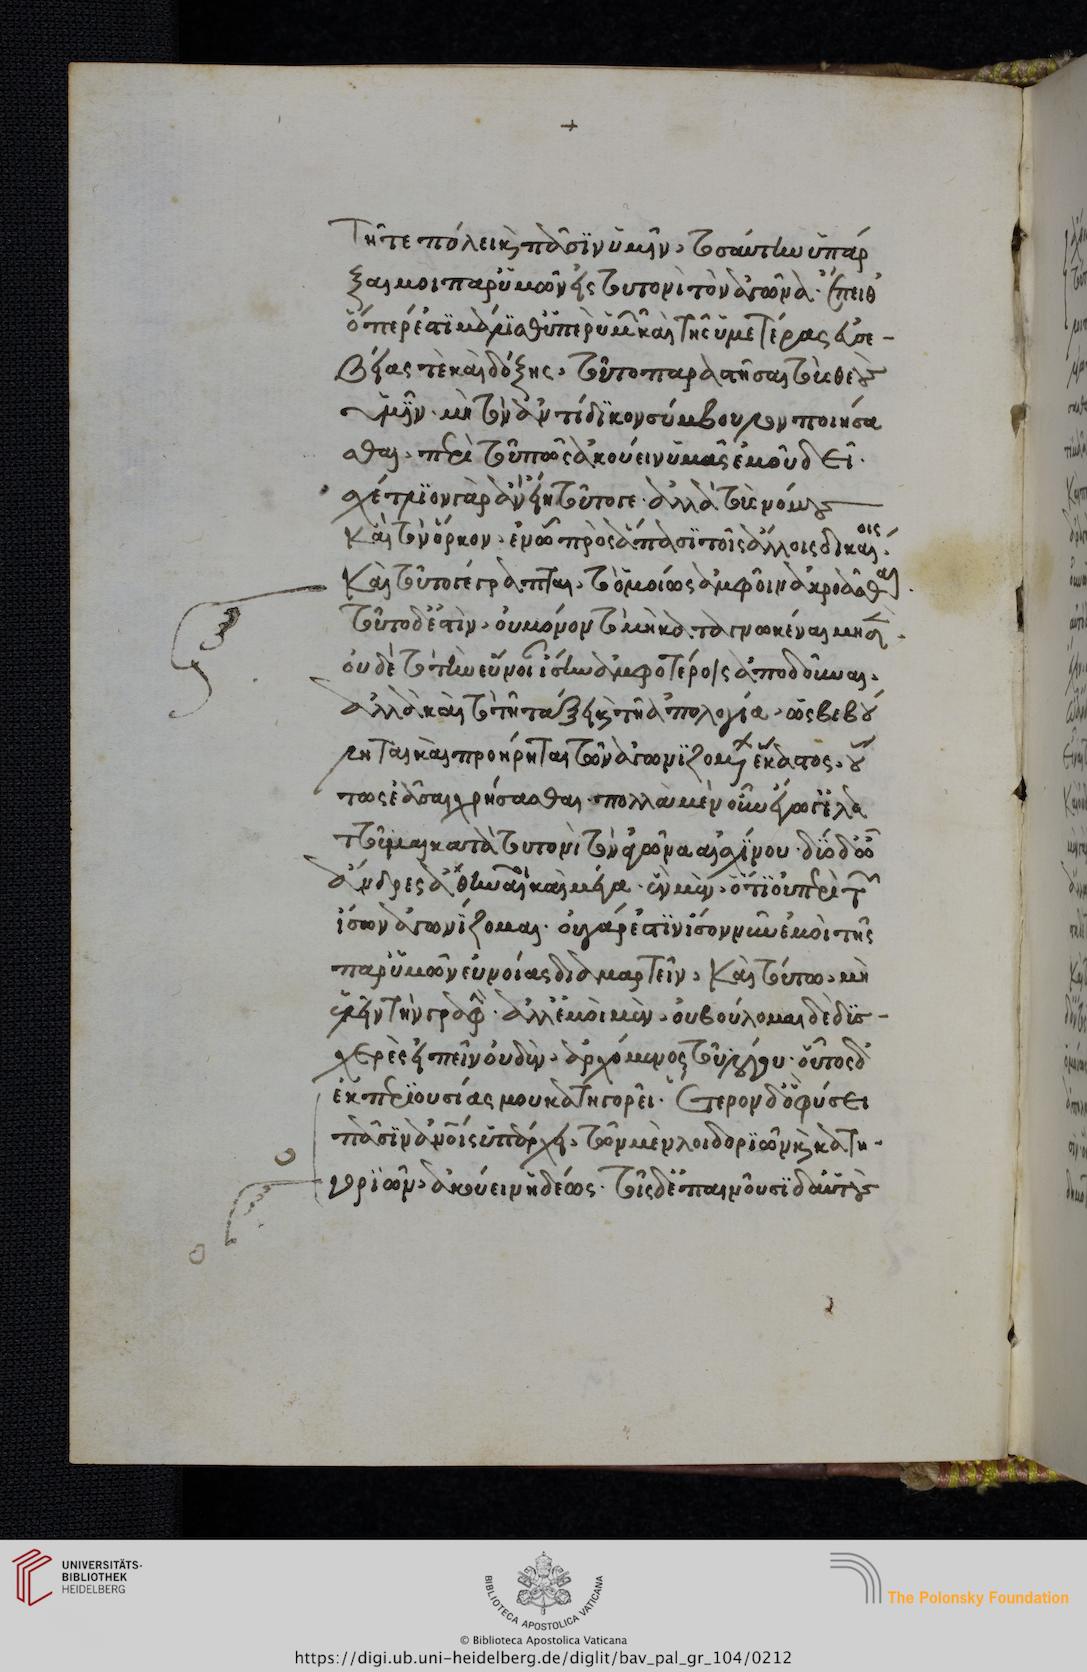 +
τῆ τε πόλει καὶ πᾶσιν ὑμῖν, τοσαύτην ὑπάρ
ξαι μοι παρ' ὑμῶν εἰς τουτονὶ τὸν ἀγῶνα. ἔπειθ'
ὅπερ ἐστὶ μάλισθ' ὑπὲρ ὑμῶν καὶ τῆς ὑμετέρας εὐσε-
βείας τὲ καὶ δόξης, τοῦτο παραστῆσαι τοὺς θεοὺς
ὑμῖν. μὴ τὸν ἀντίδικον σύμβουλον ποιήσα
σθαι, περὶ τοῦ πῶς ἀκούειν ὑμᾶς ἐμοῦ δεῖ.
σχέτλιον γὰρ ἂν εἴη τοῦτό γε. ἀλλὰ τοὺς νόμους
καὶ τὸν ὅρκον, ἐν ᾧ πρὸς ἅπασι τοῖς ἄλλοις δικαίοις.
καὶ τοῦτο γέγραπται, τὸ ὁμοίως ἀμφοῖν ἀκροάσασθαι.
τοῦτο δ' ἐστὶν, οὐ μόνον τὸ μὴ κατεγνωκέναι μηδὲν.
οὐδὲ τὸ τὴν εὔνοιαν ἴσην ἀμφοτέροις ἀποδοῦναι,
ἀλλὰ καὶ τὸ τῆ τάξει καὶ τῆ ἀπολογία, ὡς βεβού
ληται καὶ προήρηται τῶν ἀγωνιζομένων ἕκαστος, οὕ
τως ἐᾶσαι χρήσασθαι. πολλὰ μὲν οὖν ἔγωγ' ἐλατ
τοῦμαι κατὰ τουτονὶ τὸν ἀγῶνα αἰσχίνου. δύο δ' ὦ
ἄνδρες ἀθηναῖοι καὶ μεγάλα. ἓν μὲν, ὅτι οὐ περὶ τῶν
ἴσων ἀγωνίζομαι. οὐ γάρ ἐστιν ἴσον νῦν ἐμοὶ τῆς
παρ' ὑμῶν εὐνοίας διαμαρτεῖν, καὶ τούτω, μὴ
ἑλεῖν τὴν γραφήν. ἀλλ' ἐμοὶ μὲν, οὐ βούλομαι δὲ δυσ-
χερὲς εἰπεῖν οὐδὲν, ἀρχόμενος τοῦ λόγου. οὗτος δ'
ἐκ περιουσίας μου κατηγορεῖ. ἕτερον δ' ὃ φύσει
πᾶσιν ἀνθρώποις ὑπάρχει, τῶν μὲν λοιδοριῶν καὶ κατη-
γοριῶν, ἀκούειν ἡδέως. τοῖς δ' ἐπαινοῦσι δ' αὑτοὺς
UNIVERSITÄTS-
BIBLIOTHEK
HEIDELBERG
BIBLIOTECA APOSTOLICA VATICANA
The Polonsky Foundation
© Biblioteca Apostolica Vaticana
https://digi.ub.uni-heidelberg.de/diglit/bav_pal_gr_104/0212